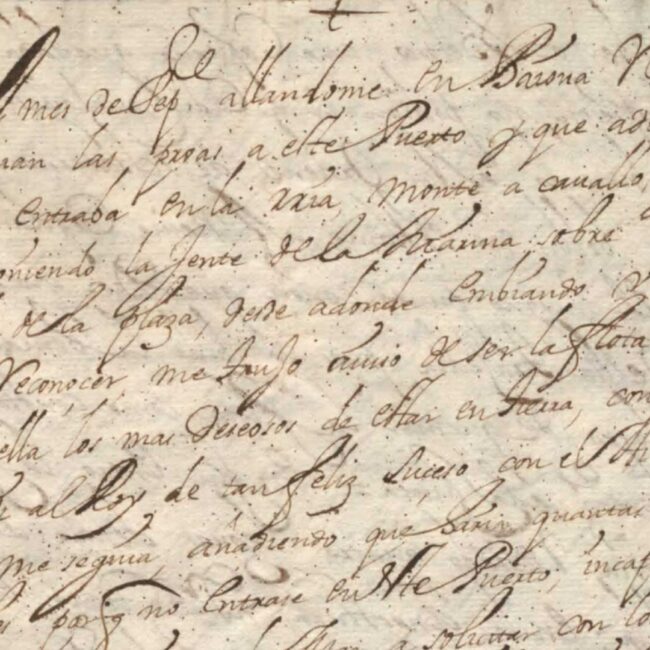 mes de Sep.re allandome en Bayona
las proas a este Puerto y que
entraba en la rria, monte a cauallo,
poniendo la Jente de la Marina sobre
de la plaza, desde adonde embiando
Reconocer, me trujo auiso de ser la flota
ella los mas deseosos de estar en tierra, con
al Rey, de tan feliz suceso, con el
me seguia, añadiendo que haria quantas
por q no entrase en este Puerto,
a solicitar con